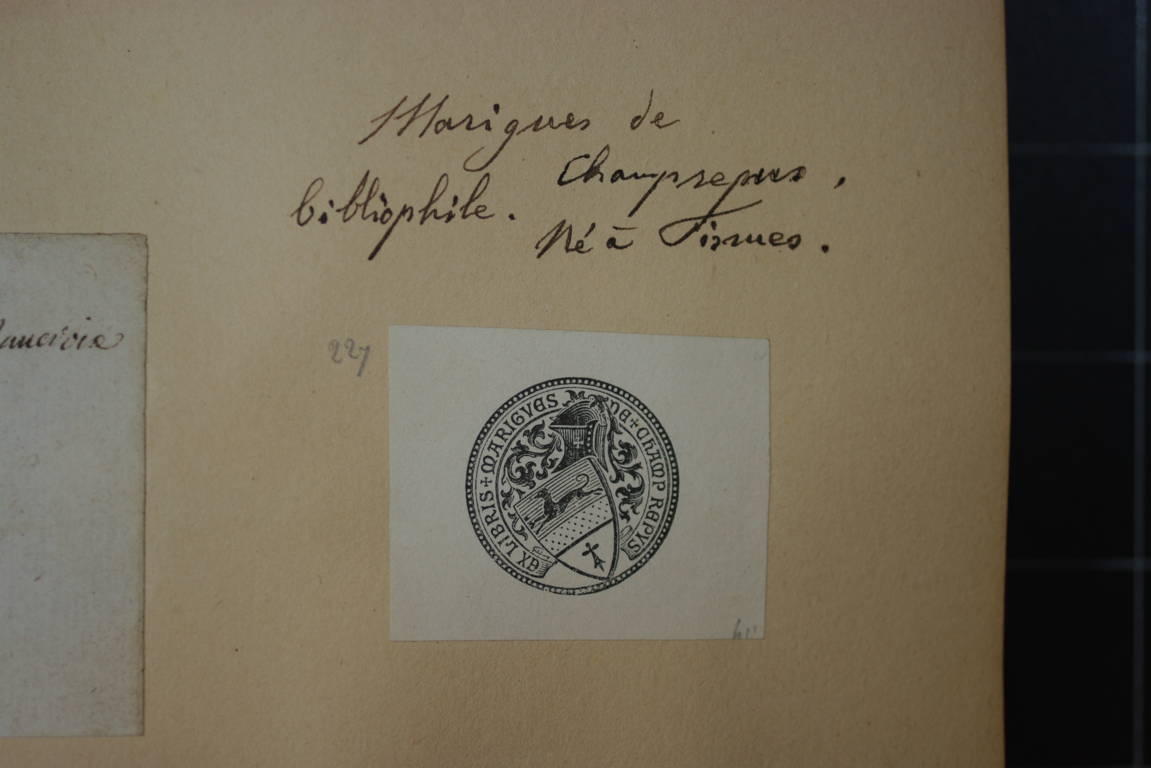 Marigues de
Champrepus,
bibliophile.
Né à Fismes.
227
EX LIBRIS + MARIGVES DE + CHAMPREPVS